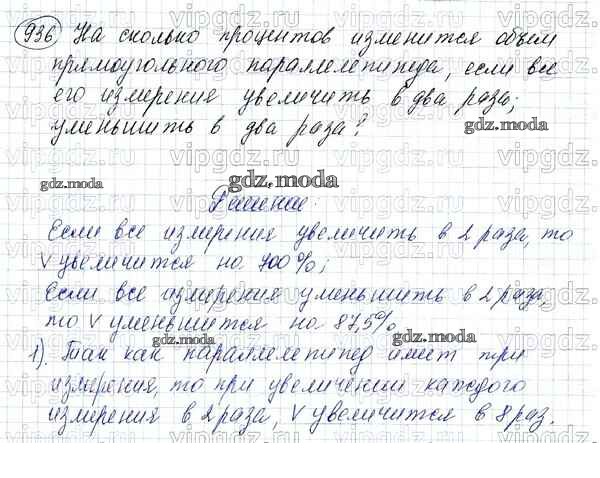 936 На сколько процентов изменится объем
прямоугольного параллелепипеда, если все
его измерения увеличить в два раза;
уменьшить в два раза?
gdz.moda
gdz.moda
gdz.moda
Решение:
Если все измерения увеличить в 2 раза, то
V увеличится на 700%;
Если все измерения уменьшить в 2 раза,
то V уменьшится на 87,5%
gdz.moda
gdz.moda
1). Так как параллелепипед имеет три
измерения, то при увеличении каждого
измерения в 2 раза, V увеличится в 8 раз.